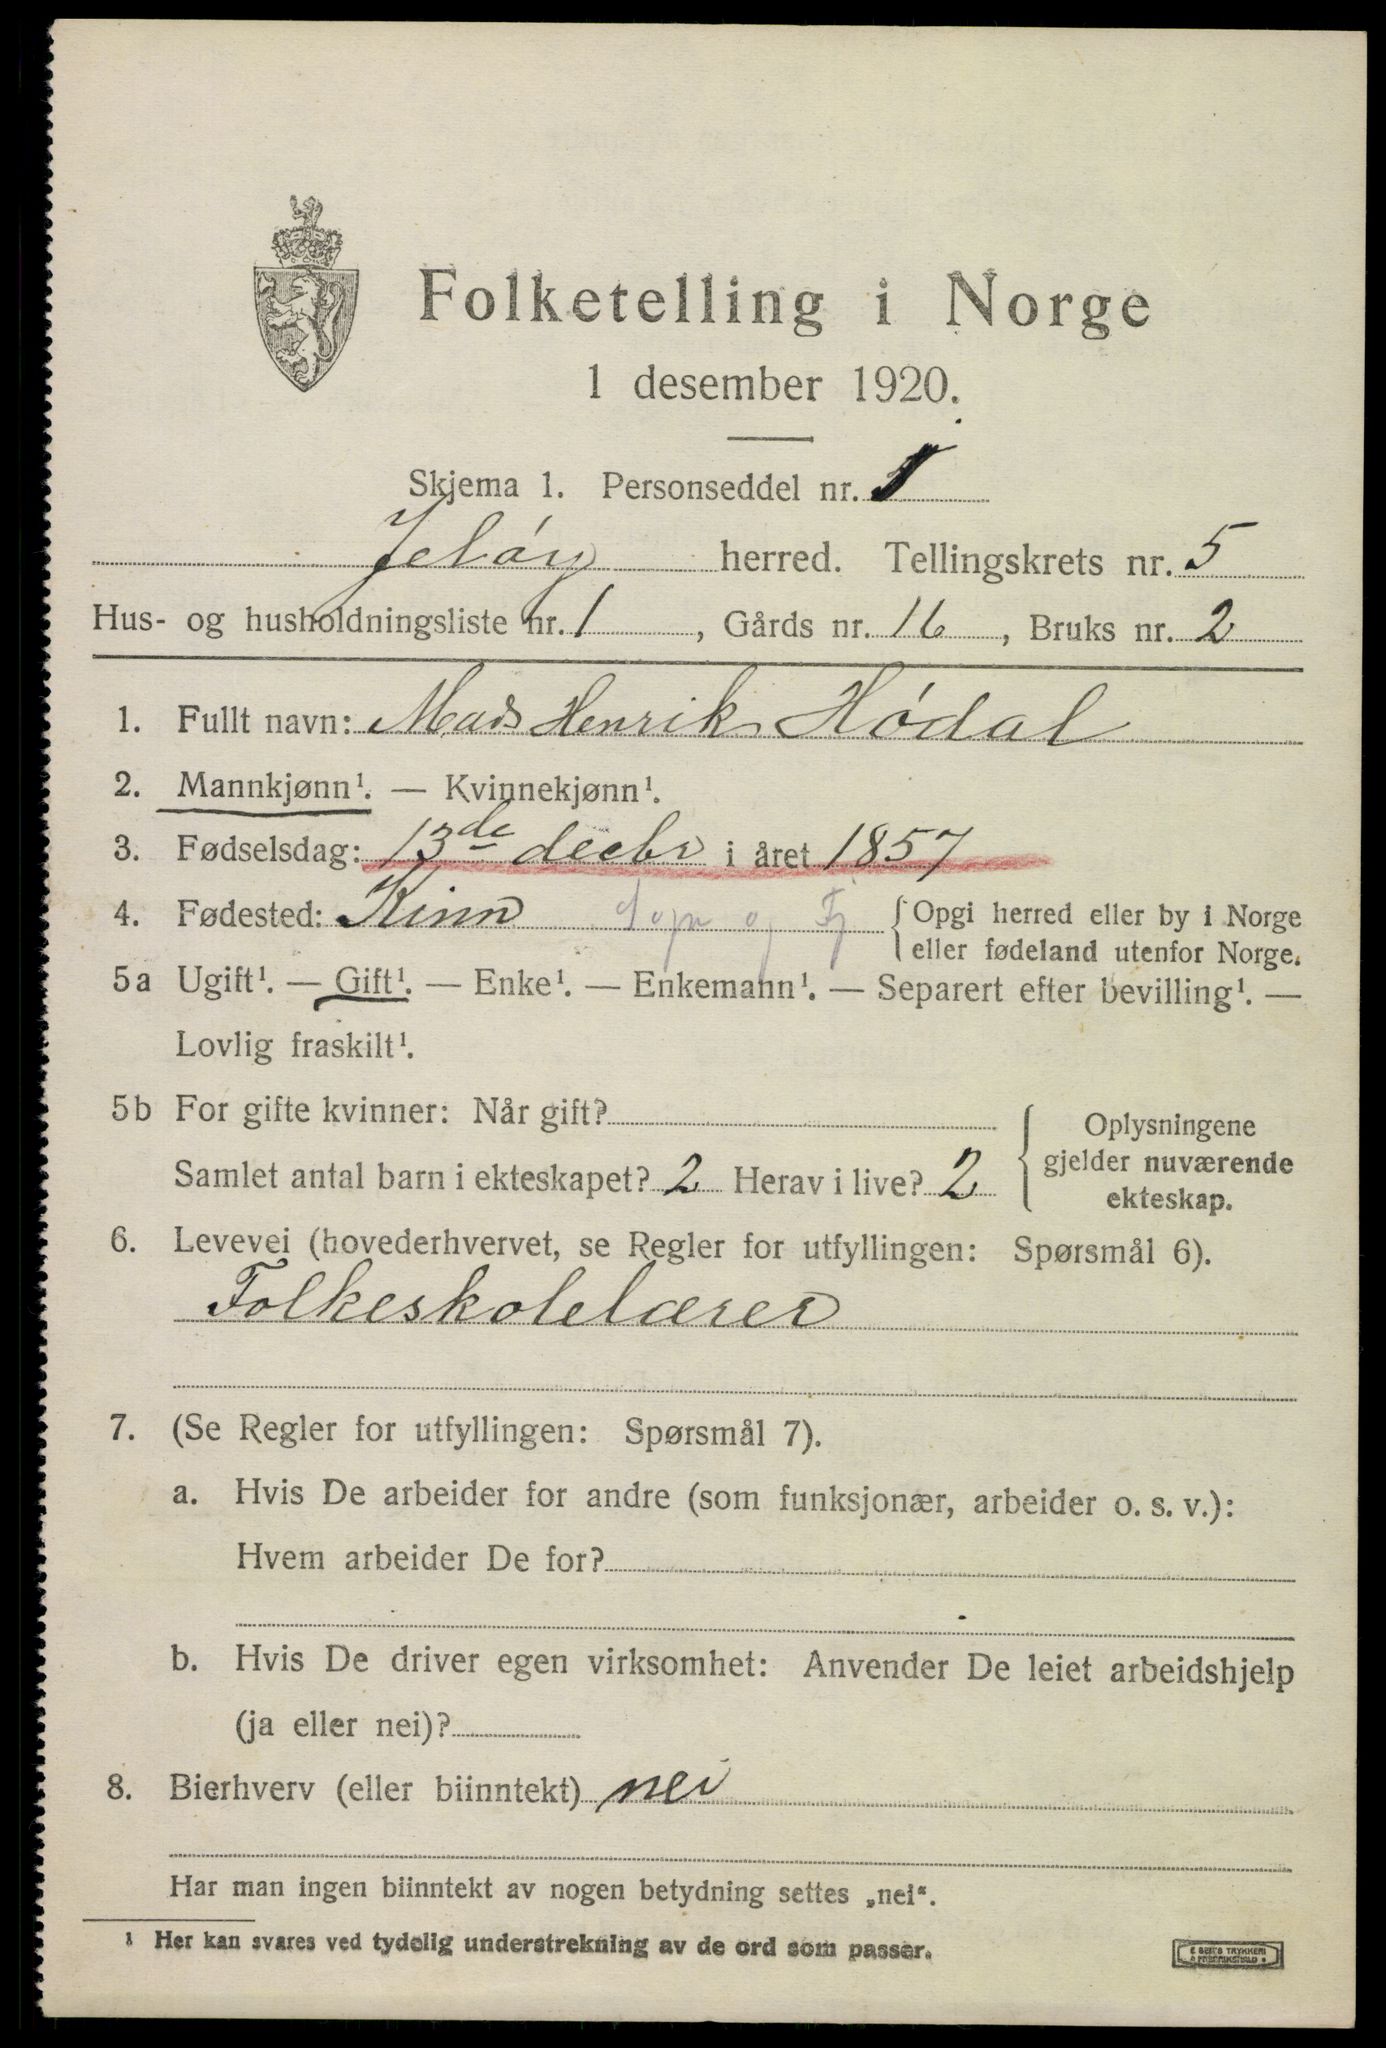 Folketelling i Norge
1 desember 1920.
Skjema 1. Personseddel nr. 1
Jeløy herred. Tellingskrets nr. 5
Hus- og husholdningsliste nr. 1, Gårds nr. 16, Bruks nr. 2
1. Fullt navn: Mads Henrik Hødal
2. Mannkjønn¹. — Kvinnekjønn¹.
3. Fødselsdag: 13de decbr i året 1857
4. Fødested: Kinn Sogn og Fj { Opgi herred eller by i Norge
eller fødeland utenfor Norge.
5a Ugift¹. — Gift¹. — Enke¹. — Enkemann¹. — Separert efter bevilling¹. —
Lovlig fraskilt¹.
5b For gifte kvinner: Når gift?
Samlet antal barn i ekteskapet? 2 Herav i live? 2
{ Oplysningene
gjelder nuværende
ekteskap.
6. Levevei (hovederhvervet, se Regler for utfyllingen: Spørsmål 6).
Folkeskolelærer
7. (Se Regler for utfyllingen: Spørsmål 7).
a. Hvis De arbeider for andre (som funksjonær, arbeider o. s. v.):
Hvem arbeider De for?
b. Hvis De driver egen virksomhet: Anvender De leiet arbeidshjelp
(ja eller nei)?
8. Bierhverv (eller biinntekt) nei
Har man ingen biinntekt av nogen betydning settes „nei“.
¹ Her kan svares ved tydelig understrekning av de ord som passer.
E SEM'S TRYKKERI
FREDRIKSHALD